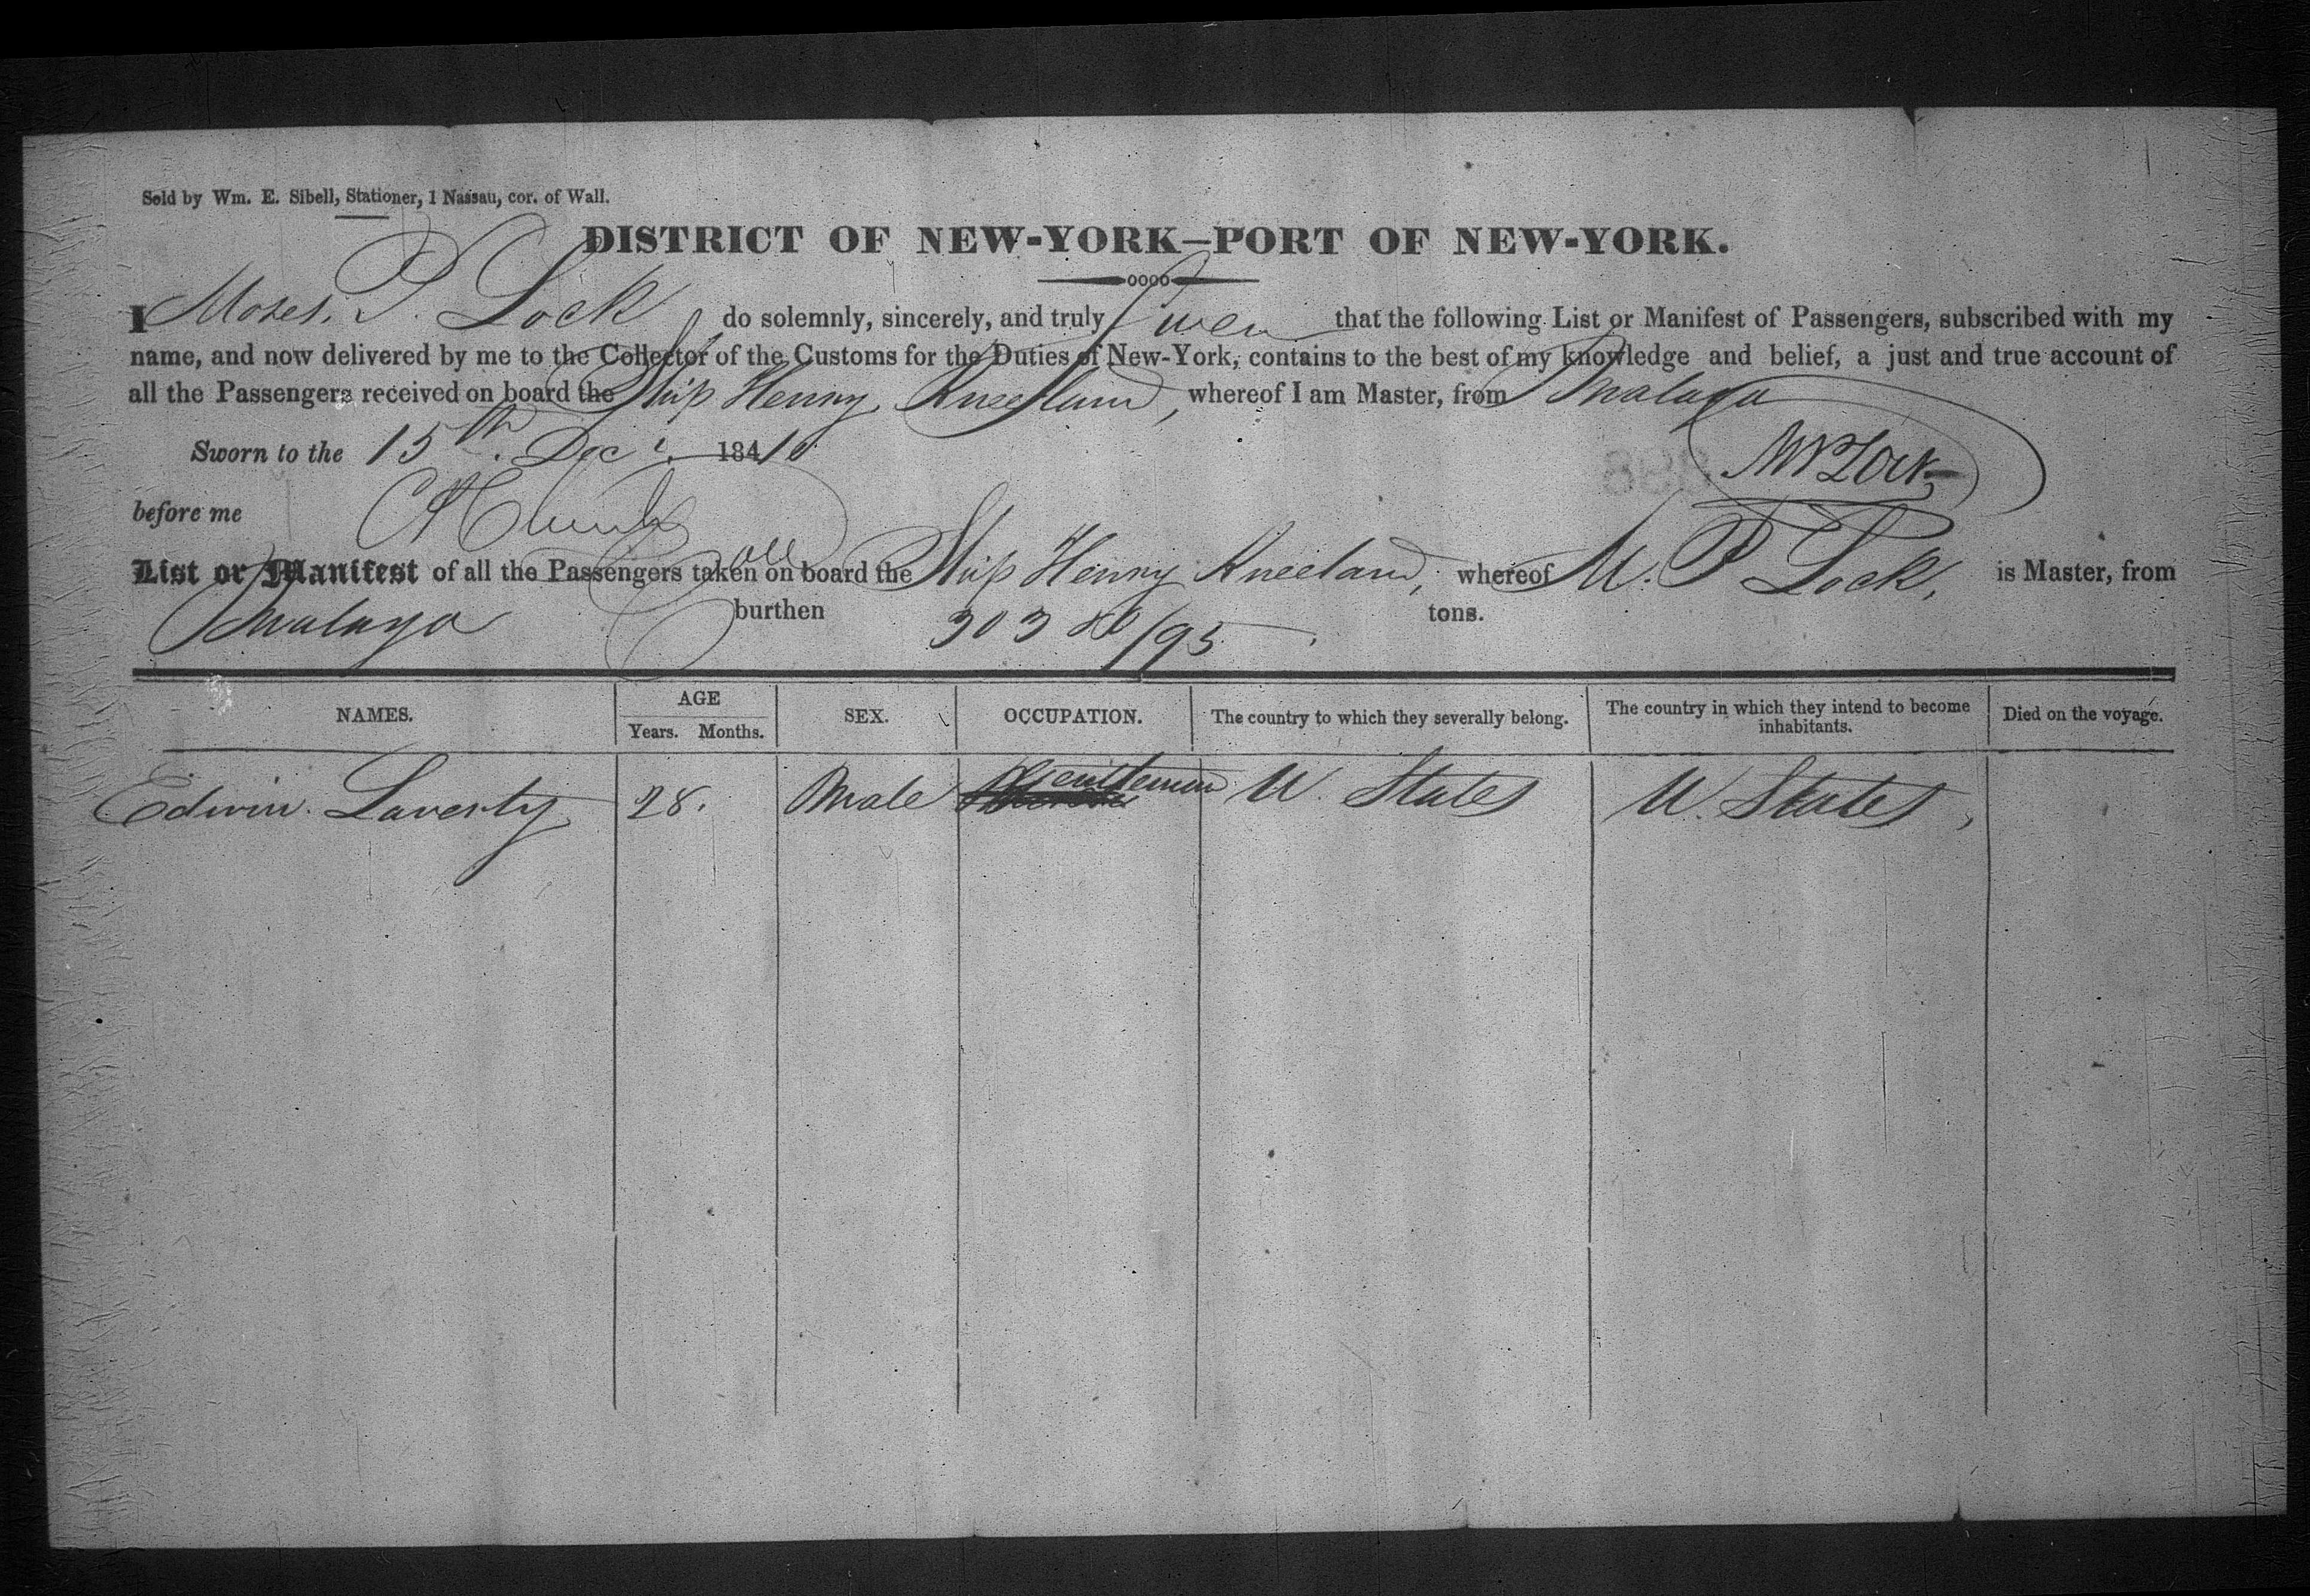 Sold by Wm. E. Sibell, Stationer, 1 Nassau, cor. of Wall.
DISTRICT OF NEW-YORK—PORT OF NEW-YORK.
I Moses. P. Lock do solemnly, sincerely, and truly Swear that the following List or Manifest of Passengers, subscribed with my
name, and now delivered by me to the Collector of the Customs for the Duties of New-York, contains to the best of my knowledge and belief, a just and true account of
all the Passengers received on board the Ship Henry Kneeland, whereof I am Master, from Malaga
Sworn to the 15th. Dec. 184
M P Lock
before me
List or Manifest of all the Passengers taken on board the Ship Henry Kneeland, whereof M. P Lock, is Master, from
Malaga burthen 303 80/95 tons.
NAMES. AGE SEX. OCCUPATION. The country to which they severally belong. The country in which they intend to become inhabitants. Died on the voyage.
Years. Months.
Edwin Laverty 28. Male Gentleman U. States U. States,